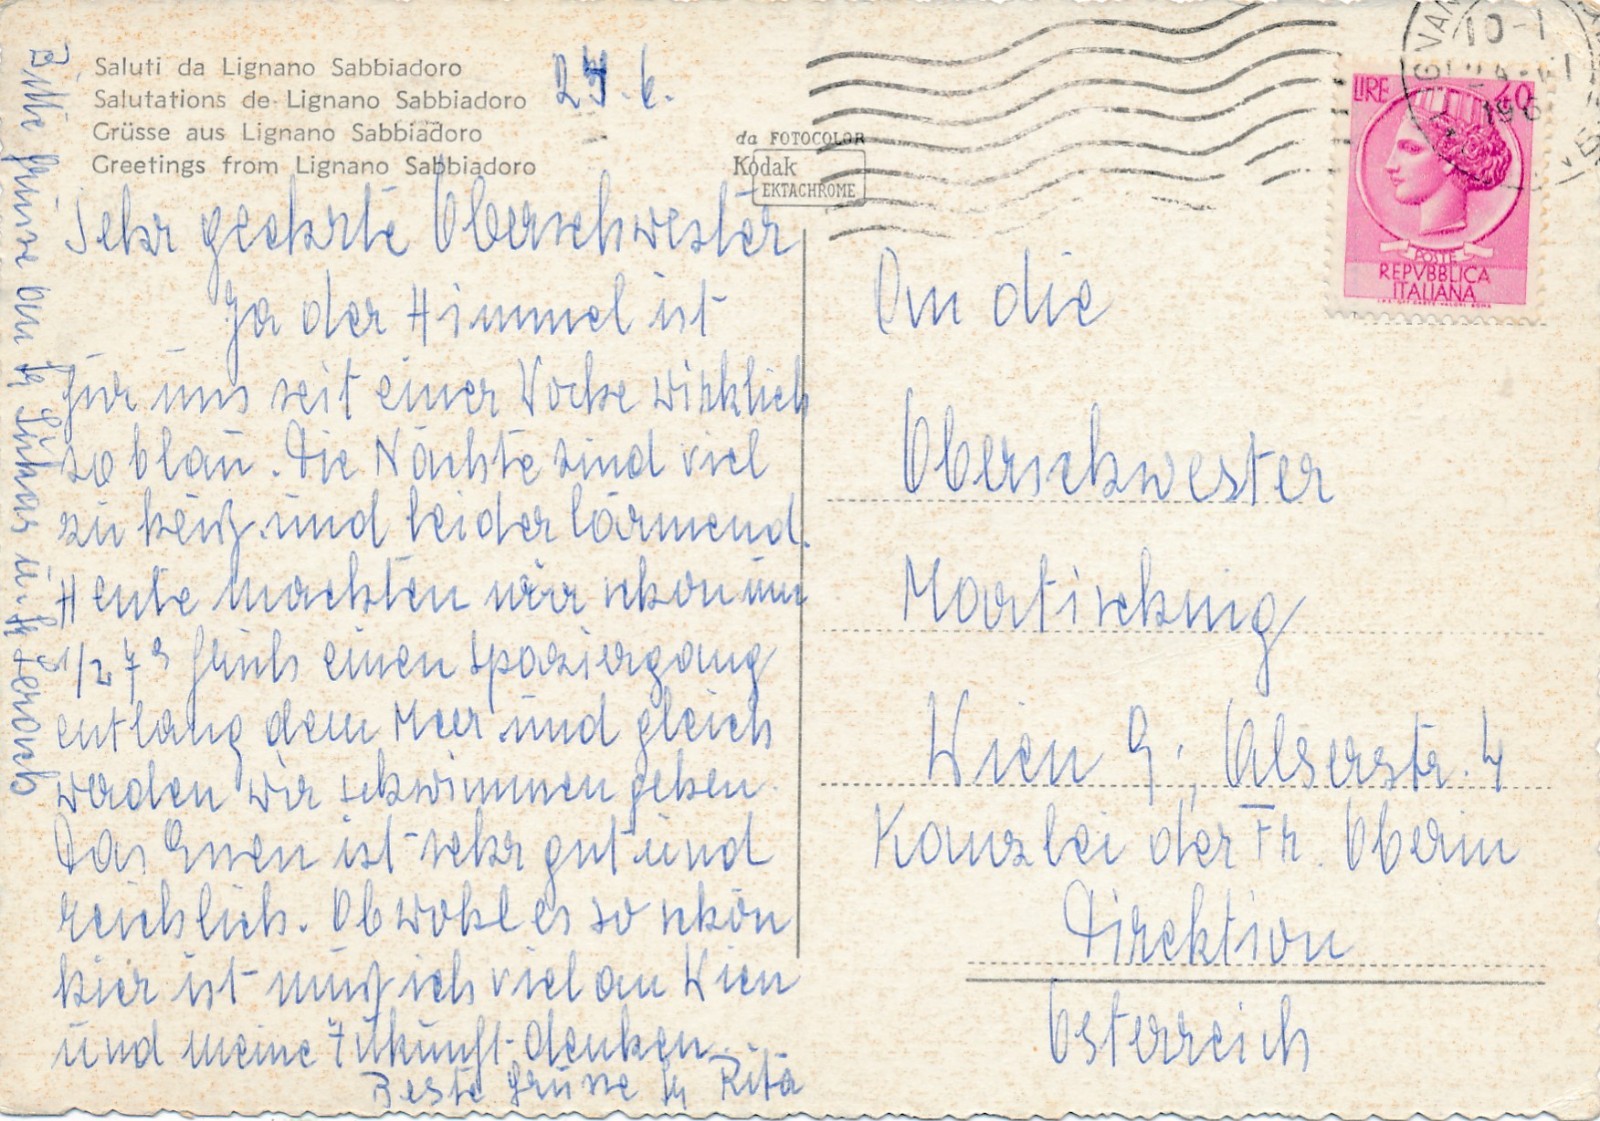 Saluti da Lignano Sabbiadoro
Salutations de Lignano Sabbiadoro
Grüsse aus Lignano Sabbiadoro
Greetings from Lignano Sabbiadoro
24.6.
da FOTOCOLOR
Kodak
EKTACHROME
Sehr geehrte Oberschwester
Ja der Himmel ist
für uns seit einer Woche wirklich
so blau. Die Nächte sind viel
zu heiß und leider lärmend.
Heute machten wir schon um
1/2 7h früh einen Spaziergang
entlang dem Meer und gleich
werden wir schwimmen gehen.
Das Essen ist sehr gut und
reichlich. Obwohl es so schön
hier ist muß ich viel an Wien
und meine Zukunft denken.
Beste Grüsse Rita
Bitte Grüsse an
LIRE 40
POSTE
REPVBBLICA
ITALIANA
An die
Oberschwester
Martischnig
Wien 9., Alserstr. 4
Kanzlei der Fr. Oberin
Direktion
Österreich